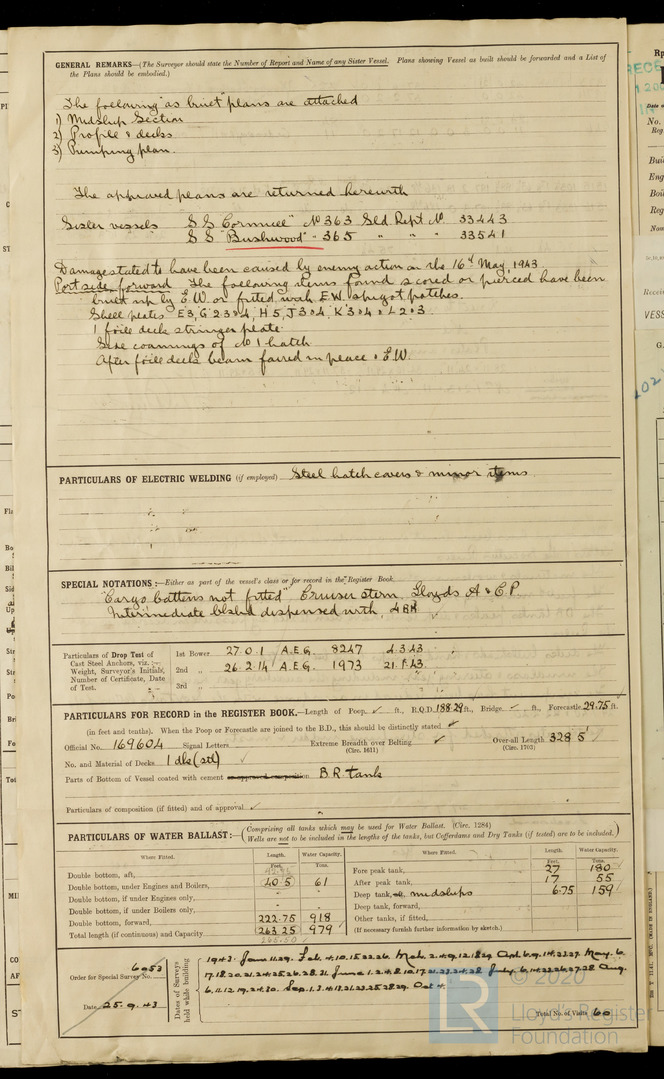 GENERAL REMARKS—(The Surveyor should state the Number of Report and Name of any Sister Vessel. Plans showing Vessel as built should be forwarded and a List of
the Plans should be embodied.)
The following "as built" plans are attached
1) Midship Section
2) Profile & decks
3) Pumping plan.
The approved plans are returned herewith
Sister vessels S.S. "Cornmill" No 363 Sld. Rept No. 33443
S.S. "Bushwood" " 365 " " " 33541
Damage stated to have been caused by enemy action on the 16th May, 1943.
Port side forward The following items found scored or pierced have been
built up by E.W. or fitted with E.W. spigot patches.
Shell plates E3, G 2 3 & 4, H5, J 3 & 4, K 3 & 4 & L 2 & 3.
1 fo'cle deck stringer plate
Side coamings of No 1 hatch
After fo'cle deck beam faired in peace & E.W.
PARTICULARS OF ELECTRIC WELDING (if employed) Steel hatch covers & minor items
SPECIAL NOTATIONS:—Either as part of the vessel's class or for record in the Register Book.
"Cargo battens not fitted" Cruiser stern. Lloyds A & C.P.
Intermediate dispensed with,
Particulars of Drop Test of
Cast Steel Anchors, viz.:—
Weight, Surveyor's Initials,
Number of Certificate, Date
of Test.
1st Bower 27.0.1 A.E.G. 8247 4.3.43
2nd " 26.2.14 A.E.G. 1973 21.1.43
3rd "
PARTICULARS FOR RECORD in the REGISTER BOOK.—Length of Poop ✓ ft., R.Q.D. 188.29 ft., Bridge ✓ ft., Forecastle 29.75 ft.
(in feet and tenths). When the Poop or Forecastle are joined to the B.D., this should be distinctly stated ✓
Official No. 169604 Signal Letters Extreme Breadth over Belting ✓ Over-all Length 328.5
(Circ. 1611) (Circ. 1703)
No. and Material of Decks 1 dk (stl)
Parts of Bottom of Vessel coated with cement or approved composition B R tank
Particulars of composition (if fitted) and of approval ✓
PARTICULARS OF WATER BALLAST:— (Comprising all tanks which may be used for Water Ballast. (Circ. 1284)
Wells are not to be included in the lengths of the tanks, but Cofferdams and Dry Tanks (if tested) are to be included.)
Where Fitted. Length. Water Capacity. Where Fitted. Length. Water Capacity.
Feet. Tons. Feet. Tons.
Double bottom, aft,
Double bottom, under Engines and Boilers, 40.5 61
Double bottom, if under Engines only, -
Double bottom, if under Boilers only, -
Double bottom, forward, 222.75 918
Total length (if continuous) and Capacity 263.25 979
Fore peak tank, 27 180
After peak tank, 17 55
Deep tank, midships 6.75 159
Deep tank, forward,
Other tanks, if fitted,
(If necessary furnish further information by sketch.)
Order for Special Survey No. 6053
Date 25.9.43
Dates of Surveys held while building
1943: June 11.29. Feb. 4.10.15.22.26. Mch. 2.4.9.12.18.29. Apl. 6.9.14.23.27. May. 6.
17.18.20.21.24.25.26.28.31. June 1.2.4.8.10.17.21.23.24.28 July 6.14.22.26.27.28 Aug.
6.11.12.19.24.30. Sep. 1.3.4.17.21.23.25.28.29. Oct 4.
Total No. of Visits 60
© 2020
LR
Lloyd's Register
Foundation